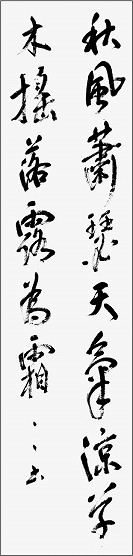 秋風蕭瑟天氣涼草
木搖落露為霜